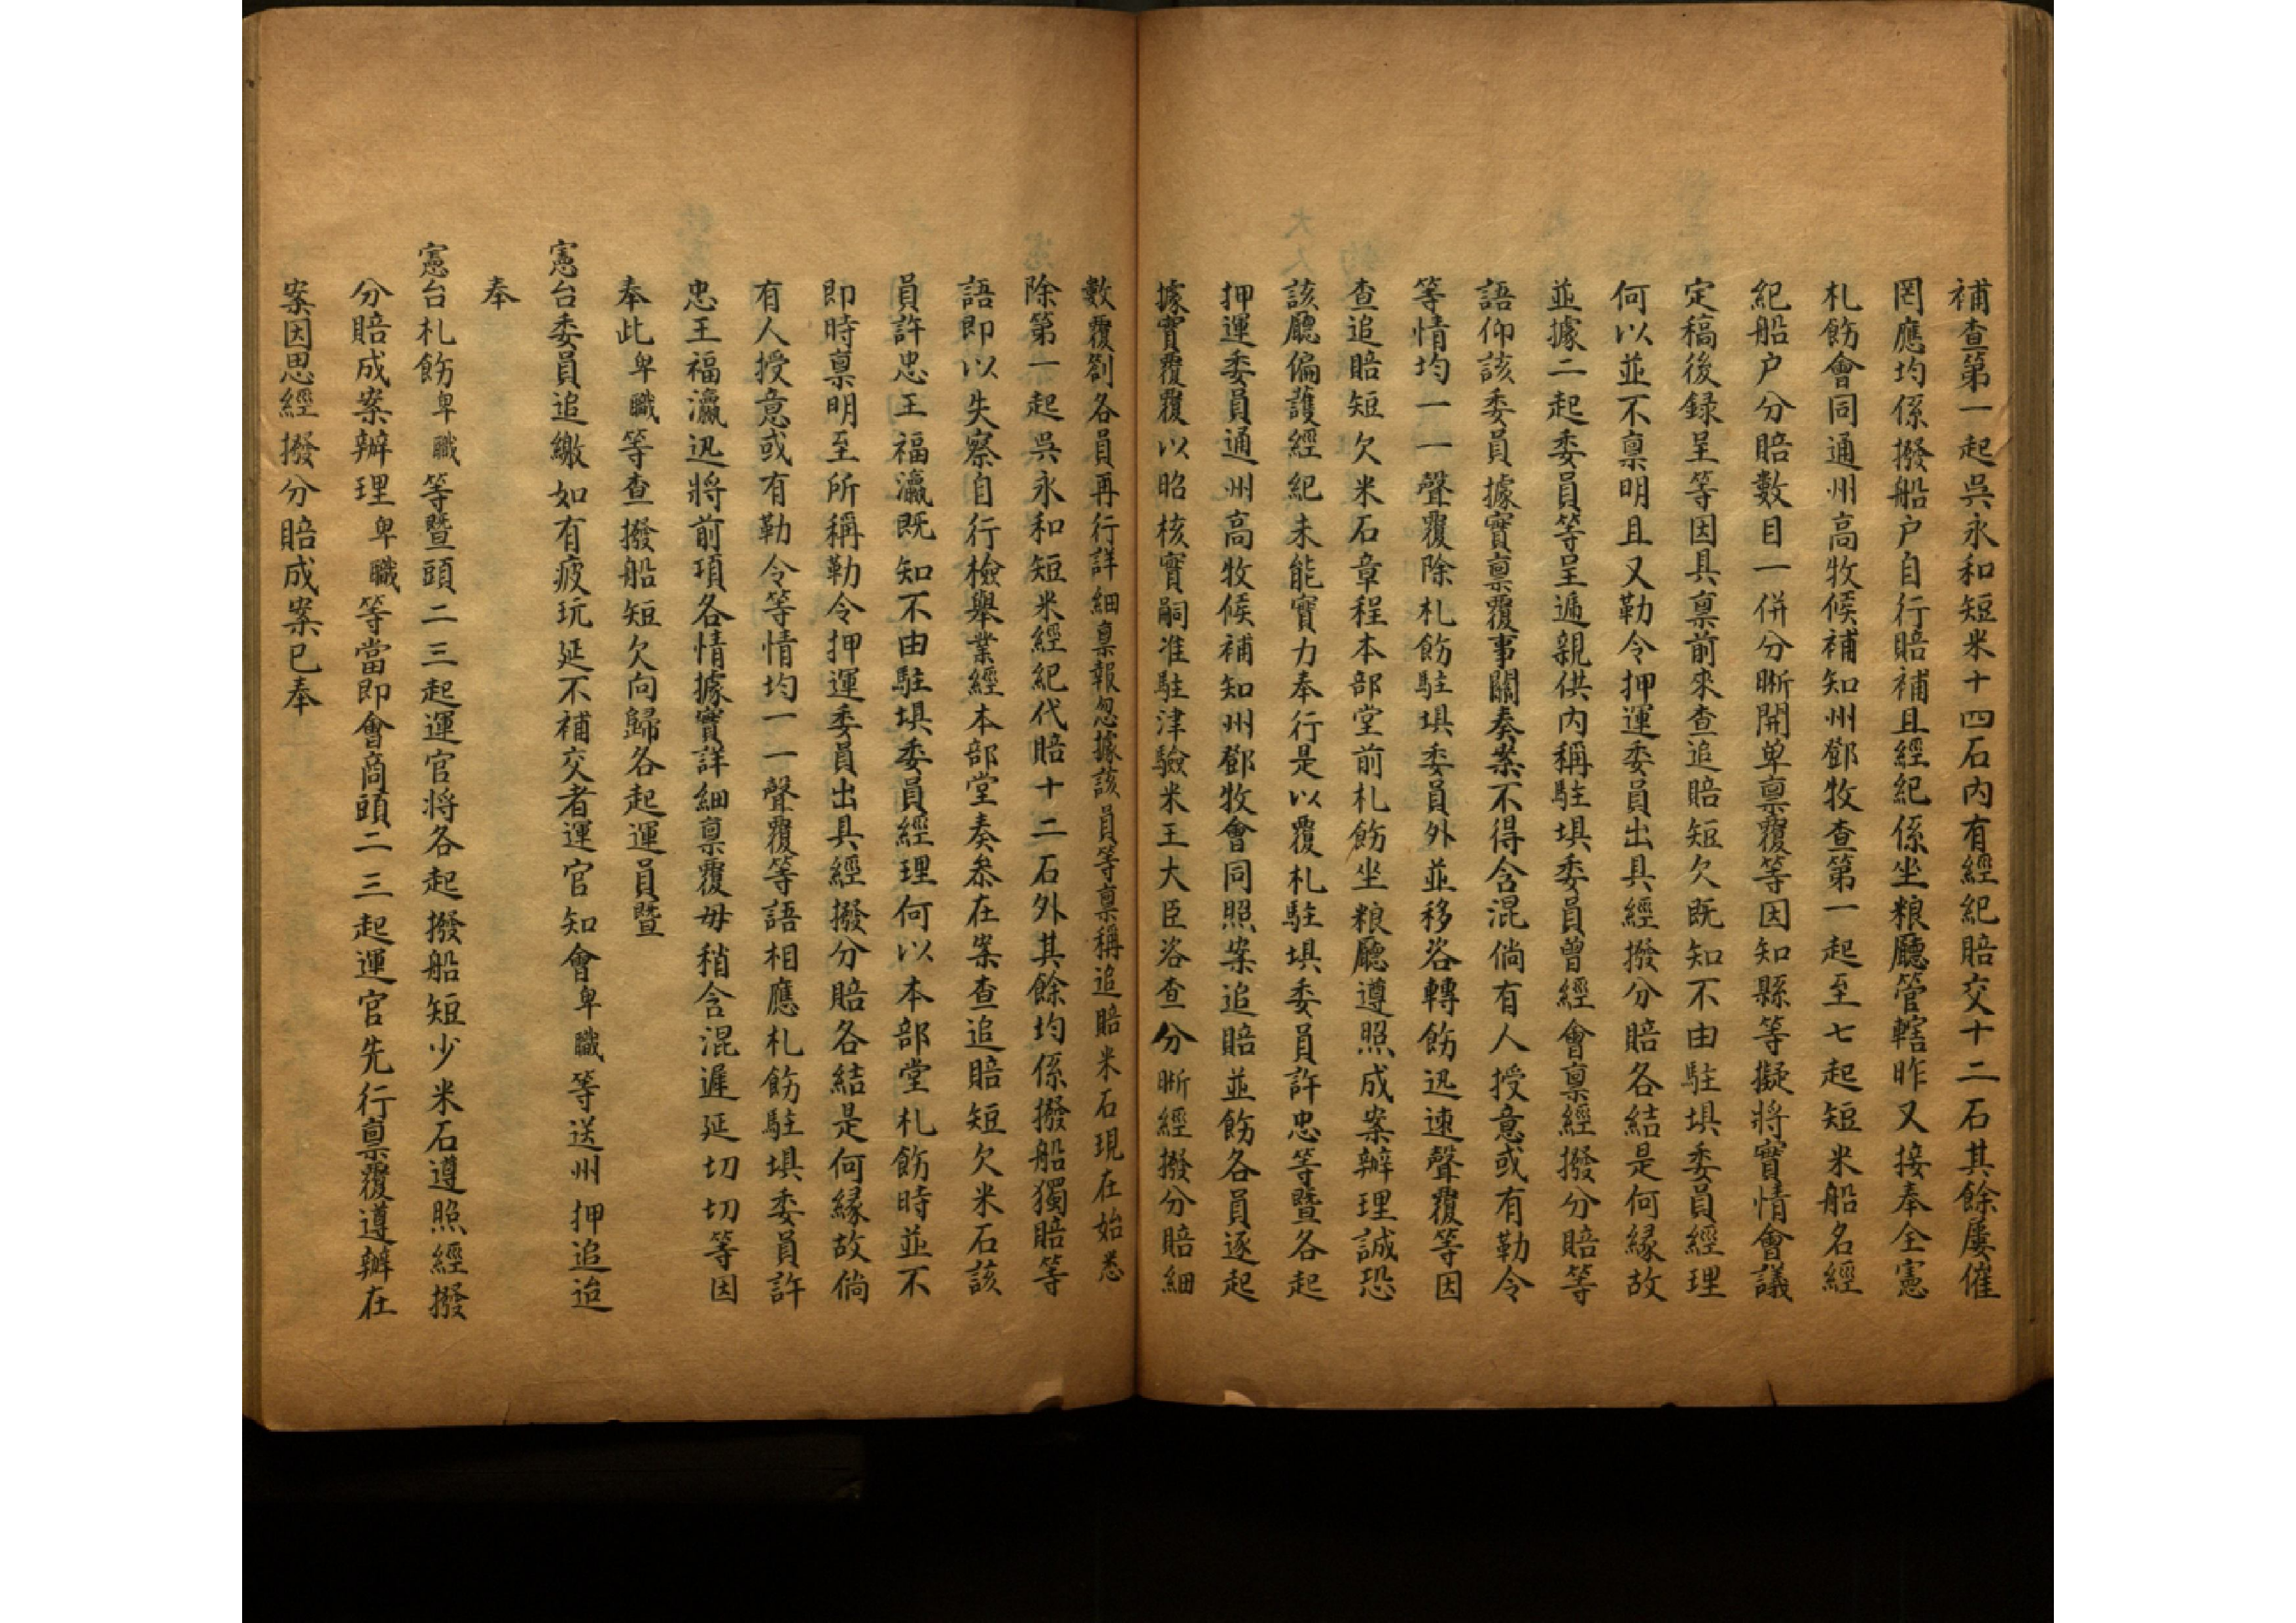 補查第一起吳永和短米十四石內有經紀賠交十二石其餘屢催
罔應均係撥船户自行賠補且經紀係坐粮廳管轄昨又接奉全憲
札飭會同通州高牧候補知州鄧牧查第一起至七起短米船名經
紀船户分賠數目一併分晰開单稟覆等因知縣等擬將實情會議
定稿後録呈等因具稟前來查追賠短欠既知不由駐埧委員經理
何以並不稟明且又勒令押運委員出具經撥分賠各結是何縁故
並據二起委員等呈遞親供内稱駐埧委員曾經會稟經撥分賠等
語仰該委員據實稟覆事關奏案不得含混倘有人授意或有勒令
等情均一一聲覆除札飭駐埧委員外並移咨轉飭迅速聲覆等因
查追賠短欠米石章程本部堂前札飭坐粮廳遵照成案辦理誠恐
該廳偏護經紀未能實力奉行是以覆札駐埧委員許忠等暨各起
押運委員通州高牧候補知州鄧牧會同照案追賠並飭各員逐起
據實覆覆以昭核實嗣准駐津驗米王大臣咨查分晰經撥分賠細
數覆劄各員再行詳細稟報忽據該員等稟稱追賠米石現在始悉
除第一起吳永和短米經紀代賠十二石外其餘均係撥船獨賠等
語即以失察自行檢舉業經本部堂奏叅在案查追賠短欠米石該
員許忠王福瀛既知不由駐埧委員經理何以本部堂札飭時並不
即時稟明至所稱勒令押運委員出具經撥分賠各結是何縁故倘
有人授意或有勒令等情均一一聲覆等語相應札飭駐埧委員許
忠王福瀛迅將前項各情據實詳細稟覆毋稍含混遲延切切等因
奉此卑職等查撥船短欠向歸各起運員暨
憲台委員追繳如有疲玩延不補交者運官知會卑職等送州押追迨
奉
憲台札飭卑職等暨頭二三起運官將各起撥船短少米石遵照經撥
分賠成案辦理卑職等當即會商頭二三起運官先行稟覆遵辦在
案因思經撥分賠成案已奉